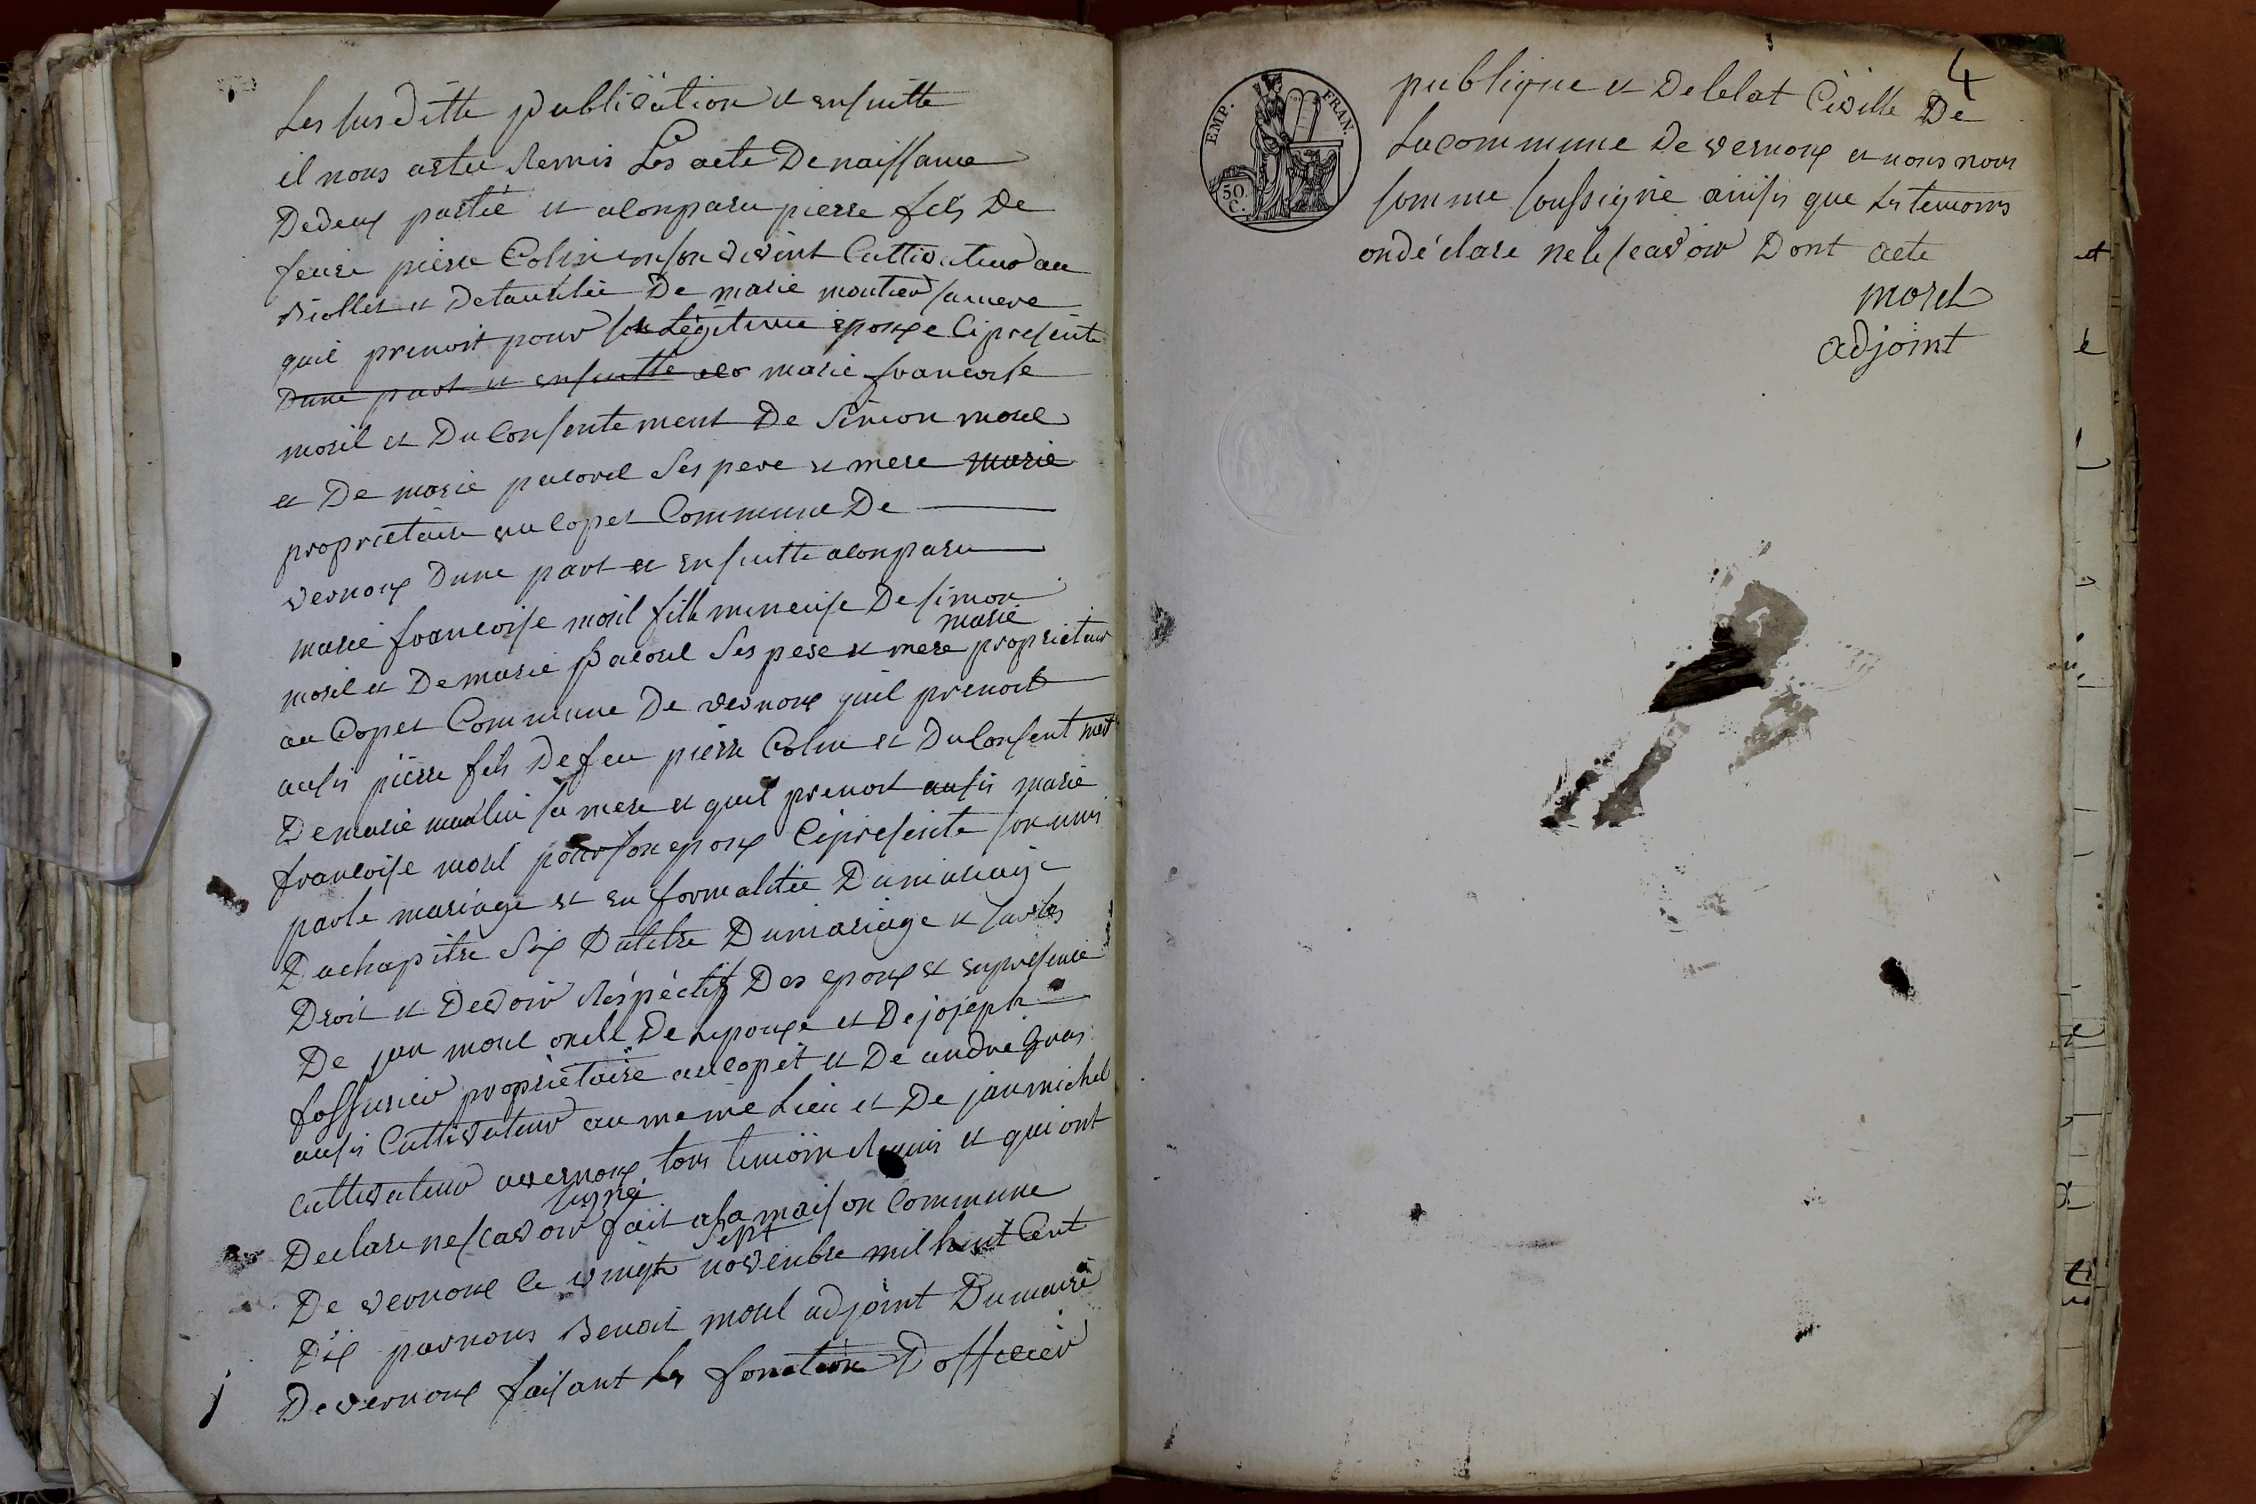 Les susditte publication et ensuitte
il nous ostee Remis Les acte De naissance
Dedeux partie et a conparu pierre fils De
feue pierre Colin enson vivent Cultivateur au
Riollet et De Marie moutier sa mere
quil prenoit pour son Légitime epouxe Cipresente
Dune part et ensuitte marie francoise
moril et Du Consentement De Simon morel
et De marie pacorel Ses pere et mere marie
proprietaire au Copet Commune De
vernoux Dune part et ensuitte aconparu
marie francoise moril fille mineuse De simon
moril et De marie pacorel Ses pere et mere marie proprietair
au Copet Commune De vernoux quil prenoit
ausis pierre fils De feu pierre Colin et Du Consent ment
De marie sa mere et quil prenoit ausis marie
francoise morel pour son epoux Cipresente son unis
par le mariage et en formalitée Dumariage
Du chapitre Six Dutitre Dumariage et sur les
Droit et Devoir Réspéctif Des epoux et en presence
De jan morel oncle De Lepouxe et De joseph
fossurier propriétaire au copet et De andre gras
ausis Cultivateur au meme Lieu et De jan michel
cultivateur avernoux tous temoin Requis et qui ont
Declare ne scavoir signé fait a la maison Commune
De vernoux le vingt Sept novenbre mil huit Cent
Dix par nous Benoit morel adjoint Du maire
De vernoux faisant Les fonction D officier
4
publique et De letat Civille De
La commune De vernoux et nous nous
somme soussigné ainsis que Les temoins
on dé clare ne le scavoir Dont acte
morel
adjoint
EMP. FRAN.
50 C.